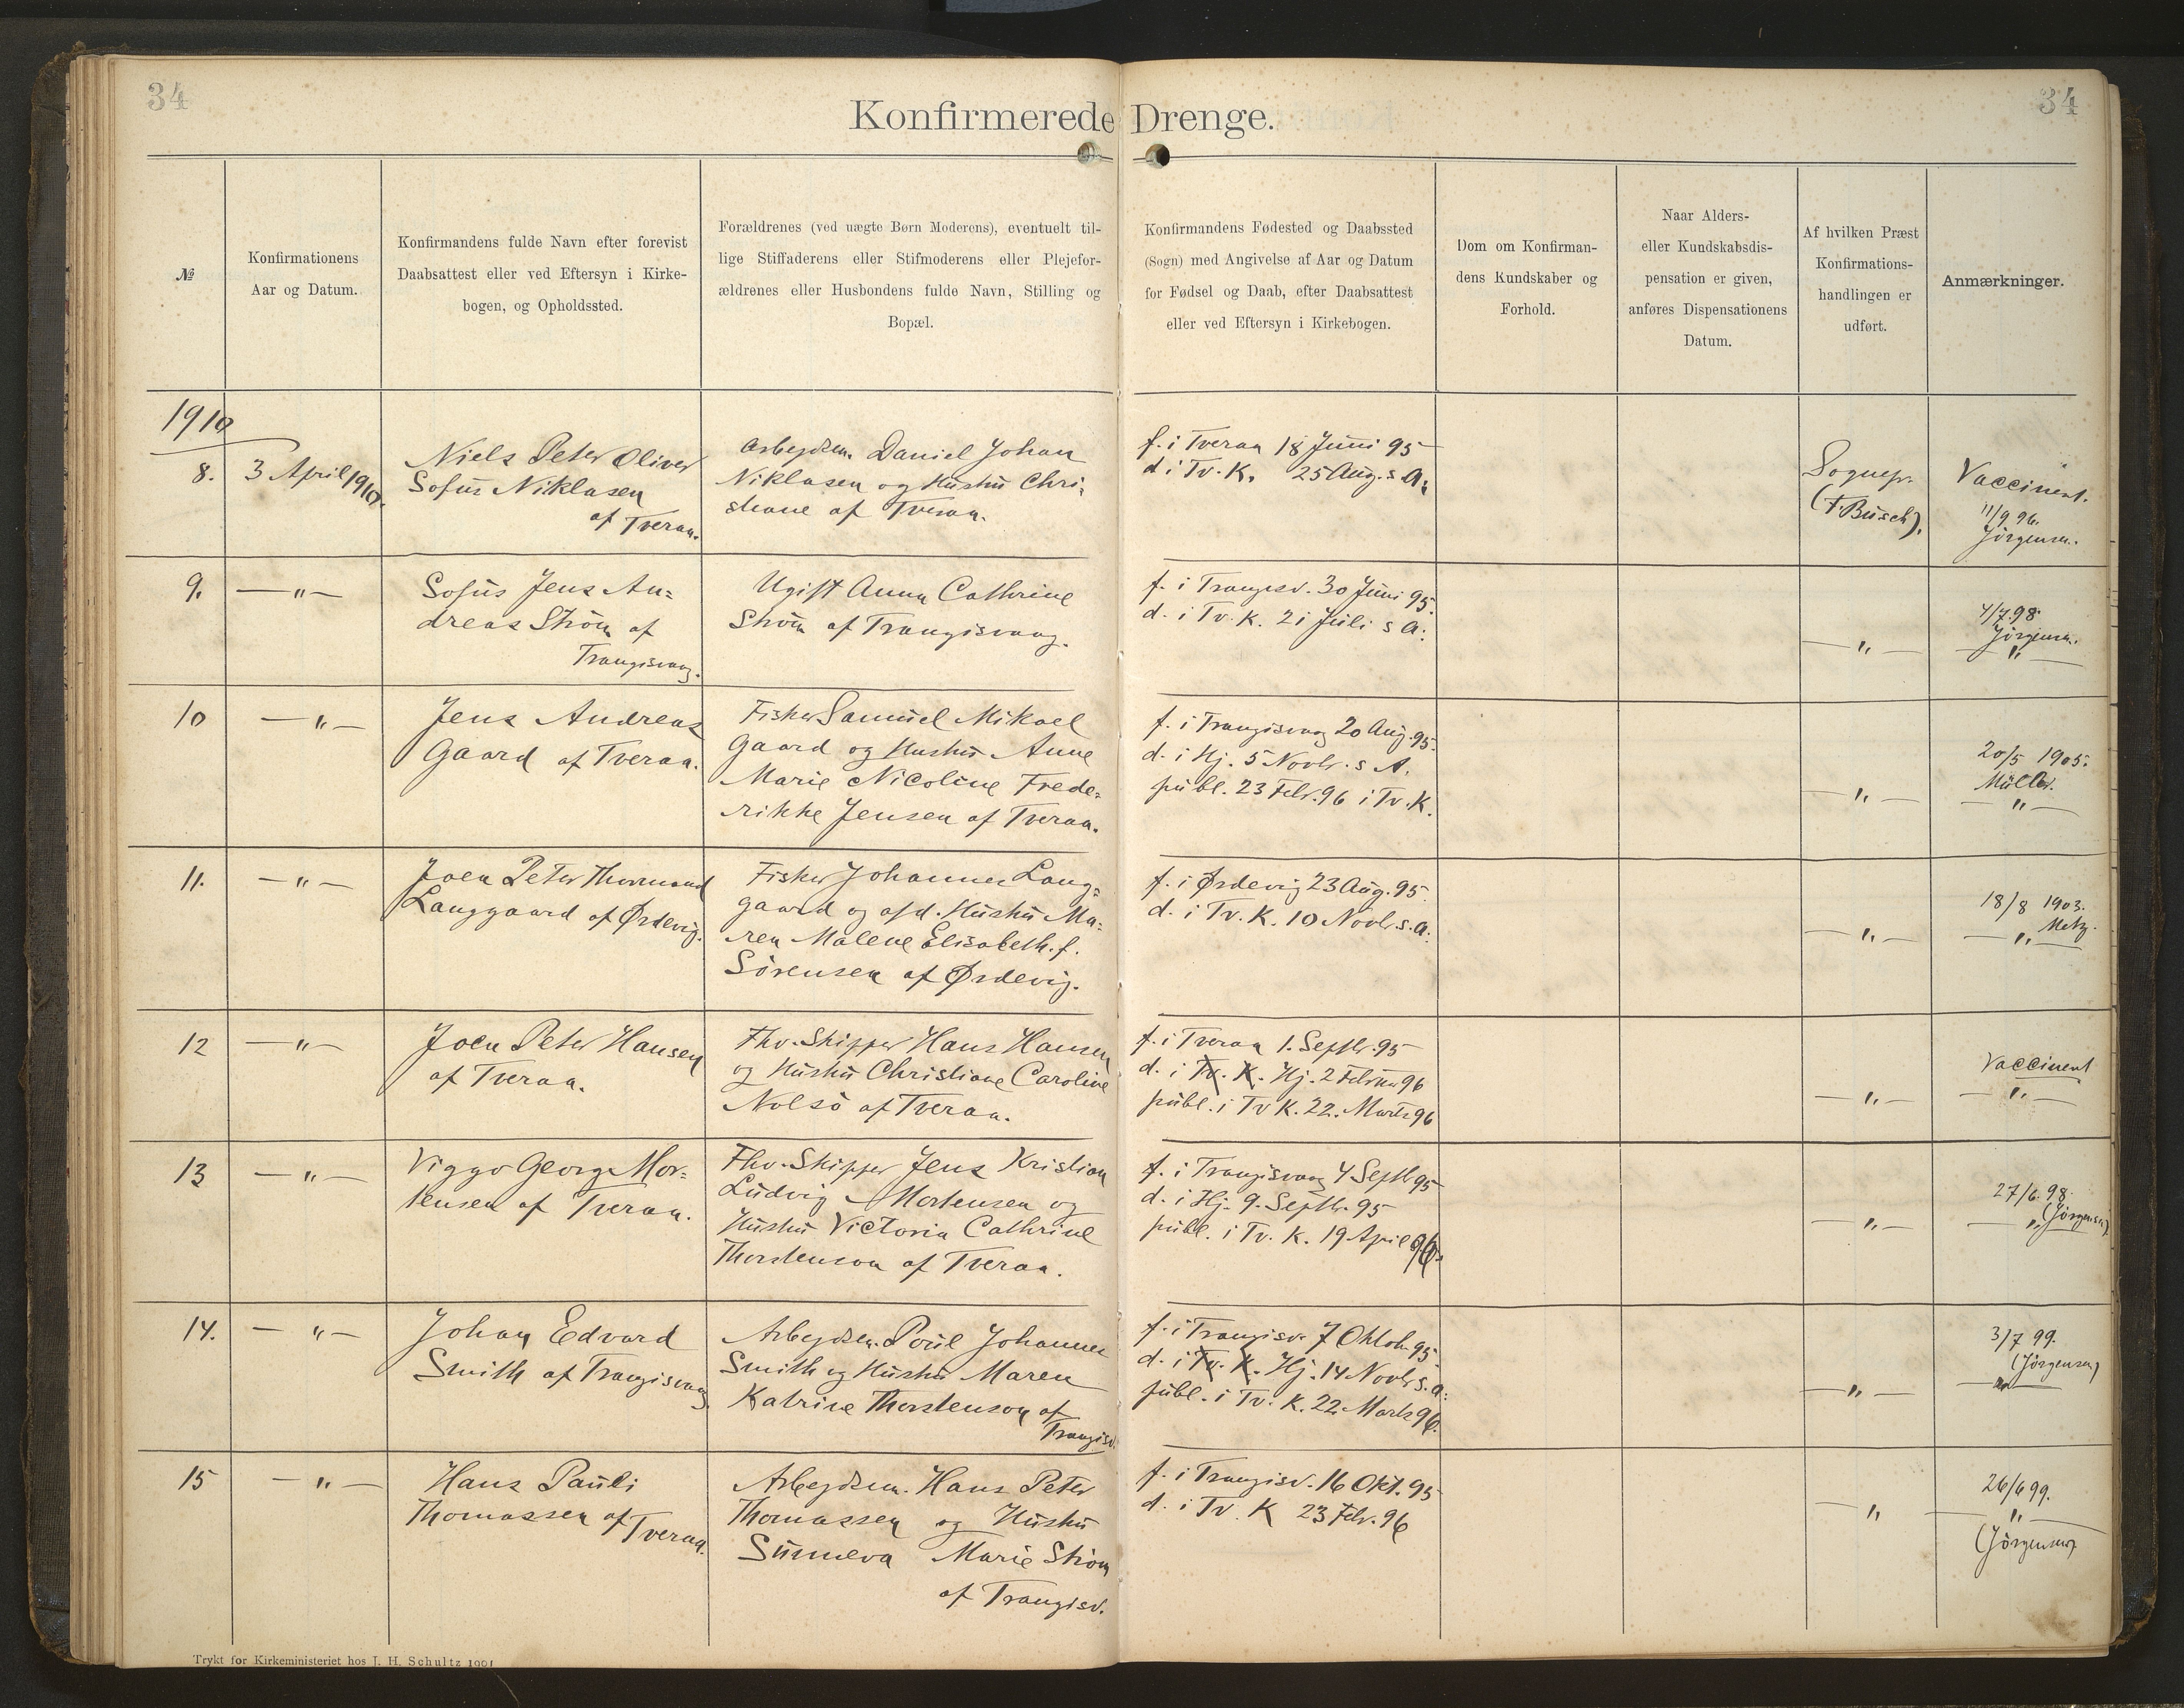 34
34
Konfirmerede Drenge.
№
Konfirmationens
Aar og Datum.
Konfirmandens fulde Navn efter forevist
Daabsattest eller ved Eftersyn i Kirke-
bogen, og Opholdssted.
Forældrenes (ved uægte Børn Moderens), eventuelt til-
lige Stiffaderens eller Stifmoderens eller Plejefor-
ældrenes eller Husbondens fulde Navn, Stilling og
Bopæl.
Konfirmandens Fødested og Daabssted
(Sogn) med Angivelse af Aar og Datum
for Fødsel og Daab, efter Daabsattest
eller ved Eftersyn i Kirkebogen.
Dom om Konfirman-
dens Kundskaber og
Forhold.
Naar Alders-
eller Kundskabsdis-
pensation er given,
anføres Dispensationens
Datum.
Af hvilken Præst
Konfirmations-
handlingen er
udført.
Anmærkninger.
1910
8.
3 April 1910.
Niels Peter Oliver
Sofus Niklasen
af Tveraa.
Arbejdsm. Daniel Johan
Niklasen og Hustru Chri-
stiane af Tveraa.
f. i Tveraa 18 Juni 95
d i Tv. K. 25 Aug. s A.
Sognepr.
(F. Busch).
Vaccineret.
11/9 96.
Jörgensen.
9.
— „ —
Sofus Jens An=
dreas Ström af
Trangisvaag.
Ugift Anna Cathrine
Ström af Trangisvaag.
f. i Trangisv. 30 Juni 95.
d. i Tv. K. 21 Juli s A.
— „ —
4/7 98.
Jörgensen.
— „ —
10
— „ —
Jens Andreas
Gaard af Tveraa.
Fisker Samuel Mikael
Gaard og Hustru Anne
Marie Nicoline Frede=
rikke Jensen af Tveraa.
f. i Trangisvaag 20 Aug. 95.
d. i Hj. 5 Novbr. s A.
publ. 23 Febr. 96 i Tv. K.
— „ —
20/5 1905.
Müller.
— „ —
11.
— „ —
Joen Peter Thormond
Langgaard af Ørdevig.
Fisker Johannes Lang=
gaard og afd. Hustru Ma=
ren Malene Elisabeth f.
Sörensen af Ørdevig.
f. i Ørdevig 23 Aug. 95.
d. i Tv. K. 10 Novbr. s. a.
— „ —
18/8 1903.
Metz.
— „ —
12
— „ —
Joen Peter Hansen
af Tveraa.
Fhv. Skipper Hans Hansen
og Hustru Christiane Caroline
Nolsö af Tveraa.
f. i Tveraa 1. Septbr. 95
d. i Tv. K. Hj. 2 Februar 96
publ. i Tv K. 22. Marts 96
— „ —
Vaccineret
— „ —
13
— „ —
Viggo Georg Mor=
tensen af Tveraa.
Fhv. Skipper Jens Kristian
Ludvig Mortensen og
Hustru Victoria Cathrine
Thorstenson af Tveraa.
f. i Trangisvaag 4 Septbr 95
d. i Hj. 9. Septbr. 95
publ. i Tv. K. 19 April 96.
— „ —
27/6. 98.
(Jörgensen)
— „ —
14.
— „ —
Johan Edvard
Smith af Trangisvaag
Arbejdsm. Poul Johannes
Smith og Hustru Maren
Katrine Thorstenson af
Trangisv.
f. i Trangisv. 7 Oktobr. 95.
d. i Tv. K. Hj. 14 Novbr s. a.
publ. i Tv. K. 22. Marts 96.
— „ —
3/7 99.
(Jörgensen)
— „ —
15
— „ —
Hans Pauli
Thomassen af Tveraa.
Arbejdsm. Hans Peter
Thomassen og Hustru
Sunneva Marie Ström
af Trangisv.
f. i Trangisv. 16 Okt. 95
d. i Tv. K 23 Febr. 96
— „
26/6 99.
— „ —
(Jörgensen)
Trykt for Kirkeministeriet hos J. H. Schultz 1901